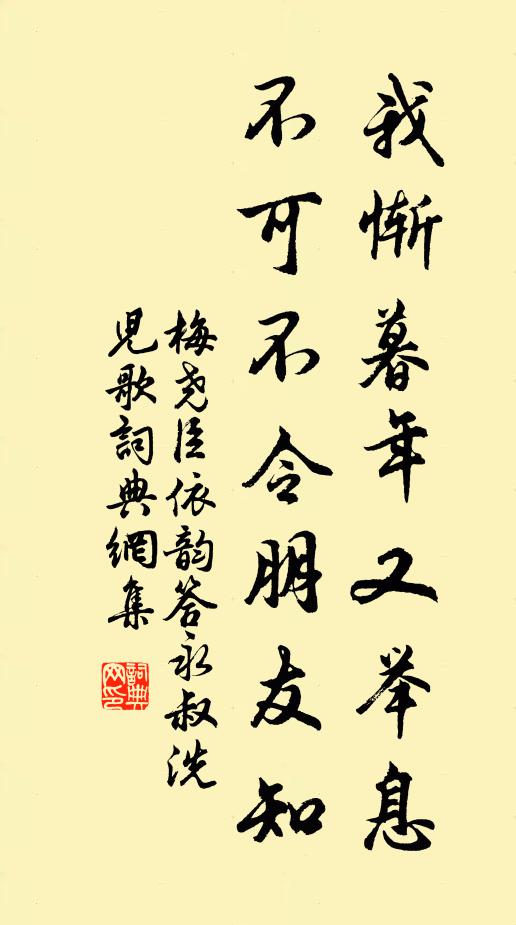 我慚暮年又举息
不可不令朋友知
梅尧臣依韵答永叔洗
児歌詞典網集
詞典網印